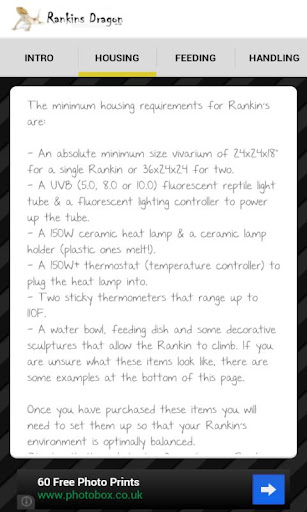 Rankins Dragon
INTRO
HOUSING
FEEDING
HANDLING
The minimum housing requirements for Rankin's
are:
- An absolute minimum size vivarium of 24x24x18"
for a single Rankin or 36x24x24 for two.
- A UVB (5.0, 8.0 or 10.0) fluorescent reptile light
tube & a fluorescent lighting controller to power
up the tube.
- A 150W ceramic heat lamp & a ceramic lamp
holder (plastic ones melt!).
- A 150W+ thermostat (temperature controller) to
plug the heat lamp into.
- Two sticky thermometers that range up to
110F.
- A water bowl, feeding dish and some decorative
sculptures that allow the Rankin to climb. If you
are unsure what these items look like, there are
some examples at the bottom of this page.
Once you have purchased these items you will
need to set them up so that your Rankin's
environment is optimally balanced.
60 Free Photo Prints
www.photobox.co.uk